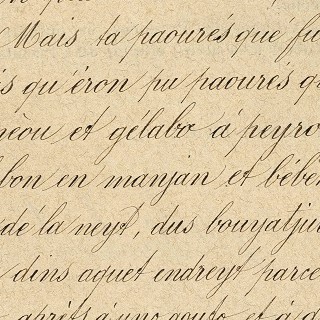 Mais ta paourés qué fu
is qu'éron pu paourés q
nèou et gélabo á peyro
bon en manjan et bébé
dé la neyt, dus bouyatju
dins aquet endreyt parce
aprèts á uno gouto, et á d